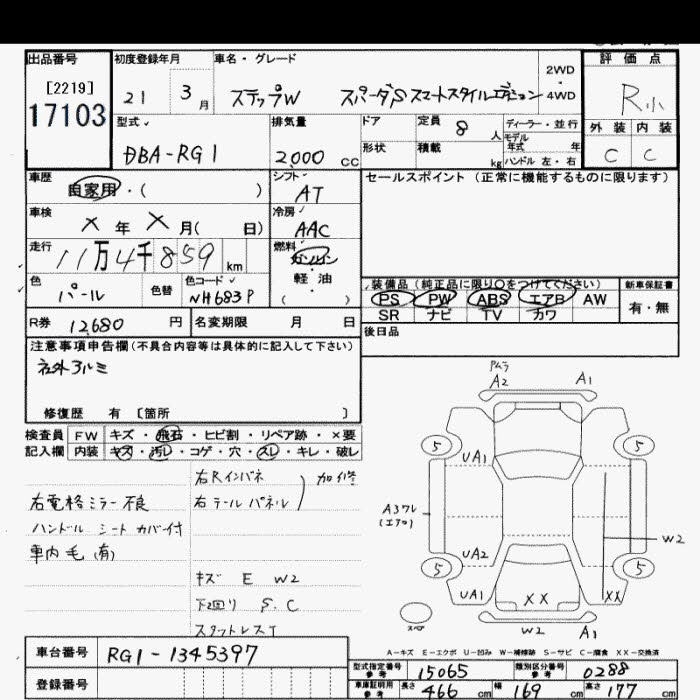 出品番号 初度登録年月 車名・グレード 評価点
[2219] 21 3月 ステップW スパーダS スマートスタイルエディション 2WD・4WD R小
17103 型式 排気量 ドア 定員 8人 ディーラー・並行 外装 内装
DBA-RG1 2,000cc 形状 積載 kg モデル年式 年 C C
ハンドル 左・右
車歴 自家用・( ) シフト AT セールスポイント(正常に機能するものに限ります)
車検 X年 X月( 日) 冷房 AAC
走行 11万4千859km 燃料 ガソリン
軽油
( )
色 パール 色替 色コード NH683P 装備品(純正品に限り○をつけてください) 新車保証書
PS PW ABS エアB AW 有・無
SR ナビ TV カワ
R券 12,680円 名変期限 月 日 後日品
注意事項申告欄(不具合内容等は具体的に記入して下さい)
社外アルミ
修復歴 有 〔箇所 〕
検査員 FW キズ・飛石・ヒビ割・リペア跡・×要
記入欄 内装 キズ・汚レ・コゲ・穴・スレ・キレ・破レ
右Rインパネ 加修
右テールパネル
右電格ミラー不良
ハンドル シートカバー付
車内毛(有)
キズ E W2
下廻り S.C
スタットレスT
A2 A1
5 5
UA1
A3ワレ
(エアロ)
W2
UA2
5 5
UA1 XX XX
スペア
W2 A1
A-キズ E-エクボ U-凹み W-補修跡 S-サビ C-腐食 XX-交換済
車台番号 RG1-1345397
登録番号
型式指定番号 参考 15065 類別区分番号 参考 0288
車庫証明用 参考 長さ 466cm 幅 169cm 高さ 177cm